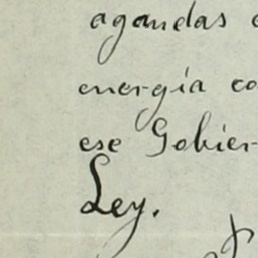 agandas
energía co
ese Gobier-
Ley.